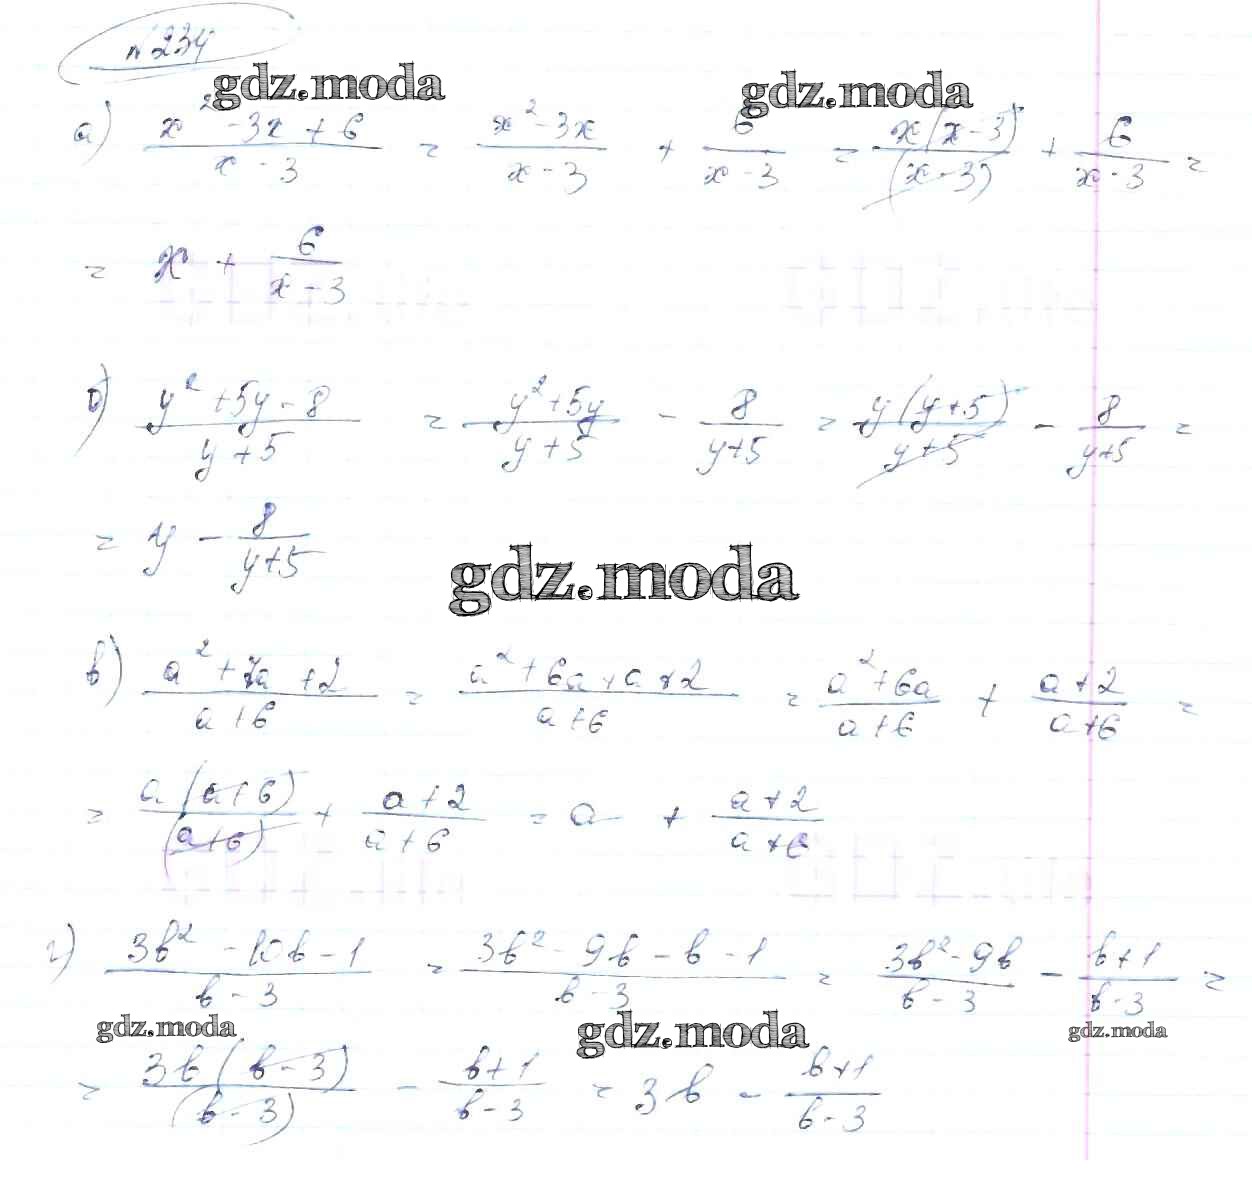 № 234
gdz.moda gdz.moda
а) (x² - 3x + 6)/(x - 3) = (x² - 3x)/(x - 3) + 6/(x - 3) = x(x - 3)/(x - 3) + 6/(x - 3) =
= x + 6/(x - 3)
б) (y² + 5y - 8)/(y + 5) = (y² + 5y)/(y + 5) - 8/(y + 5) = y(y + 5)/(y + 5) - 8/(y + 5) =
= y - 8/(y + 5)
gdz.moda
в) (a² + 7a + 2)/(a + 6) = (a² + 6a + a + 2)/(a + 6) = (a² + 6a)/(a + 6) + (a + 2)/(a + 6) =
= a(a + 6)/(a + 6) + (a + 2)/(a + 6) = a + (a + 2)/(a + 6)
г) (3b² - 10b - 1)/(b - 3) = (3b² - 9b - b - 1)/(b - 3) = (3b² - 9b)/(b - 3) - (b + 1)/(b - 3) =
gdz.moda gdz.moda gdz.moda
= 3b(b - 3)/(b - 3) - (b + 1)/(b - 3) = 3b - (b + 1)/(b - 3)